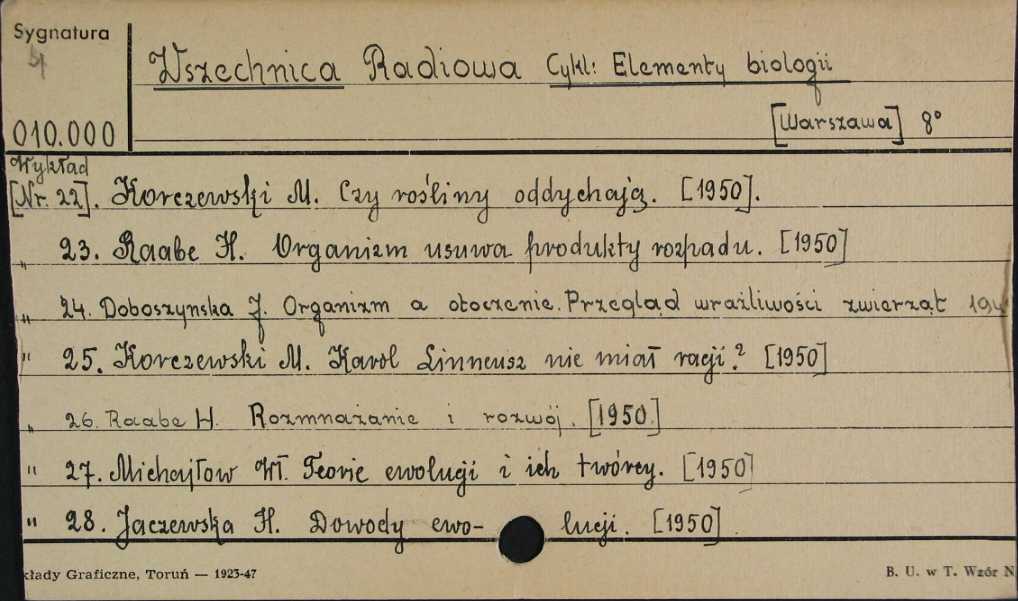 Sygnatura
Wszechnica Radiowa Cykl: Elementy biologii
[Warszawa] 8°
010.000
Wykład
[Nr. 22]. Korczewski M. Czy rośliny oddychają. [1950].
" 23. Raabe H. Organizm usuwa produkty rozpadu. [1950]
" 24. Doboszynska J. Organizm a otoczenie. Przegląd wrażliwości zwierząt
" 25. Korczewski M. Karol Linneusz nie miał racji? [1950]
" 26. Raabe H. Rozmnażanie i rozwój. [1950.]
" 27. Michajłow Wł. Teorie ewolugi i ich twórcy. [1950]
" 28. Jaczewska H. Dowody ewo- lucji. [1950]
kłady Graficzne, Toruń — 1923-47
B. U. w T. Wzór N